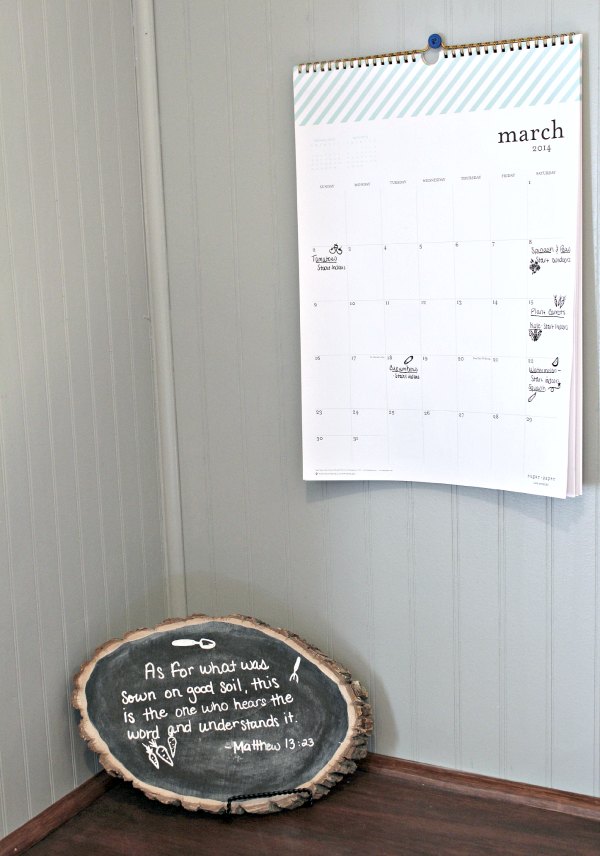 march
2014
SUNDAY MONDAY TUESDAY WEDNESDAY THURSDAY FRIDAY SATURDAY
1
2 3 4 5 6 7 8
Tomatoes
Start Indoors
Start Indoors
9 10 11 12 13 14 15
Plant Carrots
Kale-Start Indoors
16 17 18 19 20 21 22
Cucumbers
Start Indoors
Watermelon-
Start Indoors
Squash
23 24 25 26 27 28 29
30 31
As For what was
sown on good soil, this
is the one who hears the
word and understands it.
-Matthew 13:23